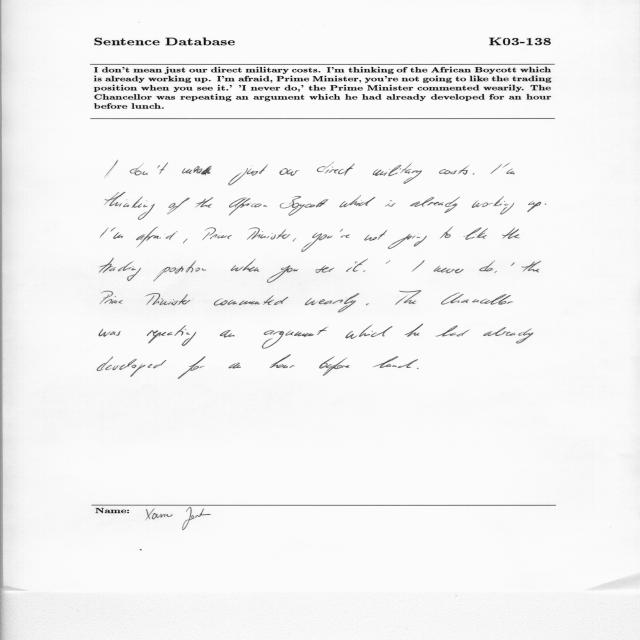 Sentence Database K03-138
I don't mean just our direct military costs. I'm thinking of the African Boycott which
is already working up. I'm afraid, Prime Minister, you're not going to like the trading
position when you see it.' 'I never do,' the Prime Minister commented wearily. The
Chancellor was repeating an argument which he had already developed for an hour
before lunch.
I don't mean just our direct military costs. I'm
thinking of the African Boycott which is already working up.
I'm afraid, Prime Minister, you're not going to like the
trading position when you see it.' I never do.' the
Prime Minister commented wearily. The Chancellor
was repeating an argument which he had already
developed for an hour before lunch.
Name: